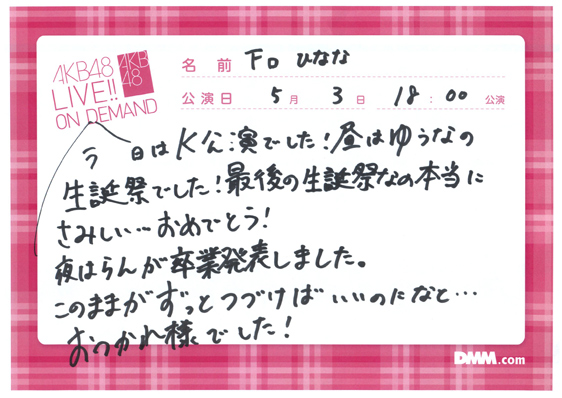 AKB48
LIVE!!
ON DEMAND
AKB
48
名前 下口 ひなな
公演日 5月 3日 18:00 公演
今日はK公演でした!昼はゆうなの
生誕祭でした!最後の生誕祭なの本当に
さみしい…おめでとう!
夜はらんが卒業発表しました。
このままがずっとつづけばいいのになと…
おつかれ様でした!
DMM.com